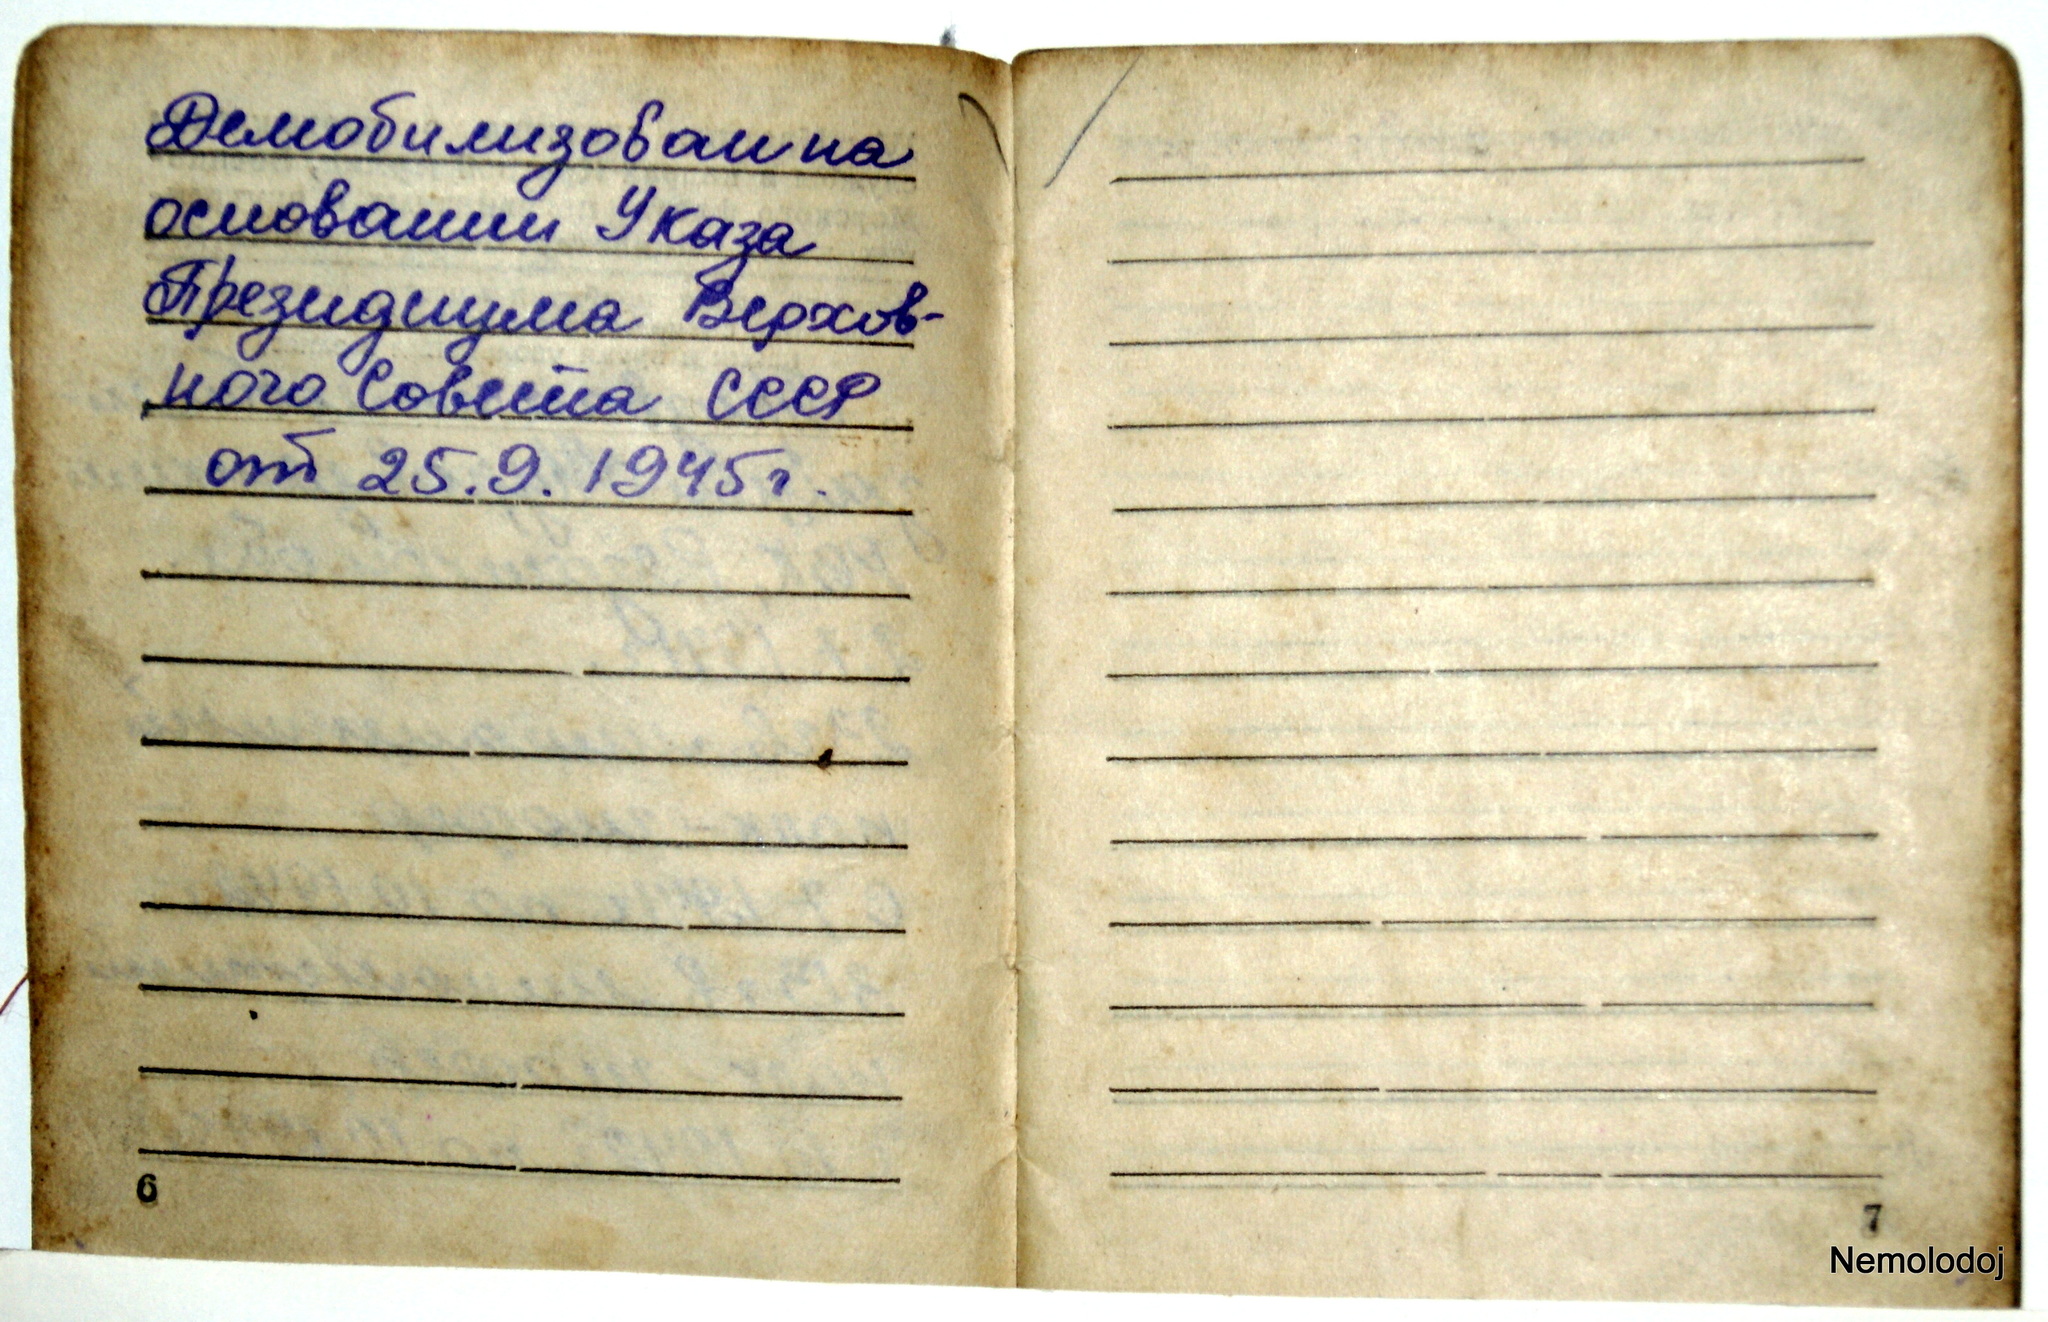 Демобилизован на
основании Указа
Президиума Верхов-
ного Совета СССР
от 25.9.1945г.
6
7
Nemolodoj